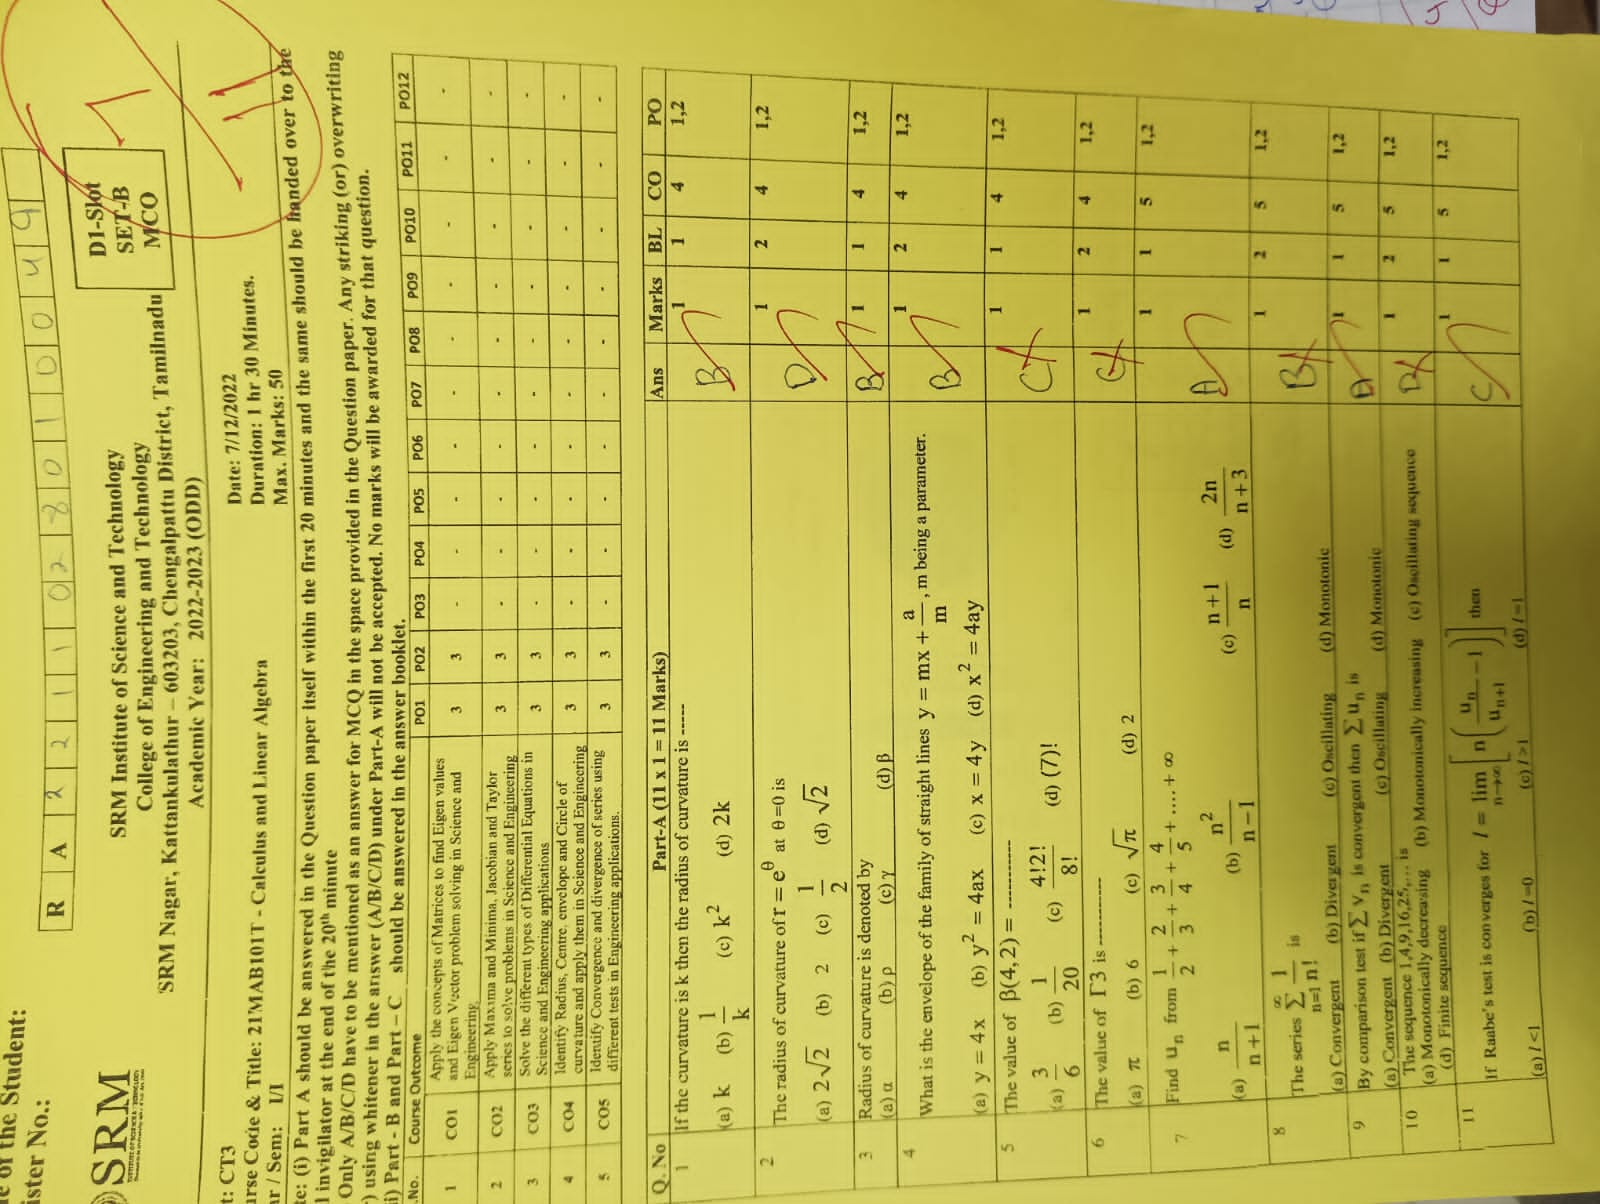 e of the Student:
ister No.:
R A 2 2 1 1 0 2 8 0 1 0 0 4 9
SRM
SRM Institute of Science and Technology
College of Engineering and Technology
SRM Nagar, Kattankulathur – 603203, Chengalpattu District, Tamilnadu
Academic Year: 2022-2023 (ODD)
D1-Slot
SET-B
MCQ
7
11
t: CT3
Date: 7/12/2022
urse Code & Title: 21MAB101T - Calculus and Linear Algebra
Duration: 1 hr 30 Minutes.
ar / Sem: I/I
Max. Marks: 50
te: (i) Part A should be answered in the Question paper itself within the first 20 minutes and the same should be handed over to the
l invigilator at the end of the 20th minute
Only A/B/C/D have to be mentioned as an answer for MCQ in the space provided in the Question paper. Any striking (or) overwriting
) using whitener in the answer (A/B/C/D) under Part-A will not be accepted. No marks will be awarded for that question.
i) Part - B and Part – C should be answered in the answer booklet.
.No. Course Outcome PO1 PO2 PO3 PO4 PO5 PO6 PO7 PO8 PO9 PO10 PO11 PO12
1 CO1 Apply the concepts of Matrices to find Eigen values 3 3 - - - - - - - - - -
and Eigen Vector problem solving in Science and
Engineering
2 CO2 Apply Maxima and Minima, Jacobian and Taylor 3 3 - - - - - - - - - -
series to solve problems in Science and Engineering
3 CO3 Solve the different types of Differential Equations in 3 3 - - - - - - - - - -
Science and Engineering applications
4 CO4 Identify Radius, Centre, envelope and Circle of 3 3 - - - - - - - - - -
curvature and apply them in Science and Engineering
5 CO5 Identify Convergence and divergence of series using 3 3 - - - - - - - - - -
different tests in Engineering applications.
Q. No Part-A (11 x 1 = 11 Marks) Ans Marks BL CO PO
1 If the curvature is k then the radius of curvature is ----- B 1 1 4 1,2
(a) k (b) 1/k (c) k² (d) 2k
2 The radius of curvature of r = e^θ at θ=0 is D 1 2 4 1,2
(a) 2√2 (b) 2 (c) 1/2 (d) √2
3 Radius of curvature is denoted by B 1 1 4 1,2
(a) α (b) ρ (c) γ (d) β
4 What is the envelope of the family of straight lines y = mx + a/m, m being a parameter. B 1 2 4 1,2
(a) y = 4x (b) y² = 4ax (c) x = 4y (d) x² = 4ay
5 The value of β(4,2) = ----------- C 1 1 4 1,2
(a) 3/6 (b) 1/20 (c) 4!2!/8! (d) (7)!
6 The value of Γ3 is ----------- C 1 2 4 1,2
(a) π (b) 6 (c) √π (d) 2
7 Find uₙ from 1/2 + 2/3 + 3/4 + 4/5 + .... + ∞ A 1 1 5 1,2
(a) n/n+1 (b) n²/n−1 (c) n+1/n (d) 2n/n+3
8 The series ∑ n=1 ∞ 1/n! is B 1 2 5 1,2
(a) Convergent (b) Divergent (c) Oscillating (d) Monotonic
9 By comparison test if ∑ vₙ is convergent then ∑ uₙ is A 1 1 5 1,2
(a) Convergent (b) Divergent (c) Oscillating (d) Monotonic
10 The sequence 1,4,9,16,25,... is D 1 2 5 1,2
(a) Monotonically decreasing (b) Monotonically increasing (c) Oscillating sequence
(d) Finite sequence
11 If Raabe's test is converges for l = lim n→∞ [n(uₙ/uₙ₊₁ − 1)] then C 1 1 5 1,2
(a) l<1 (b) l=0 (c) l>1 (d) l=1